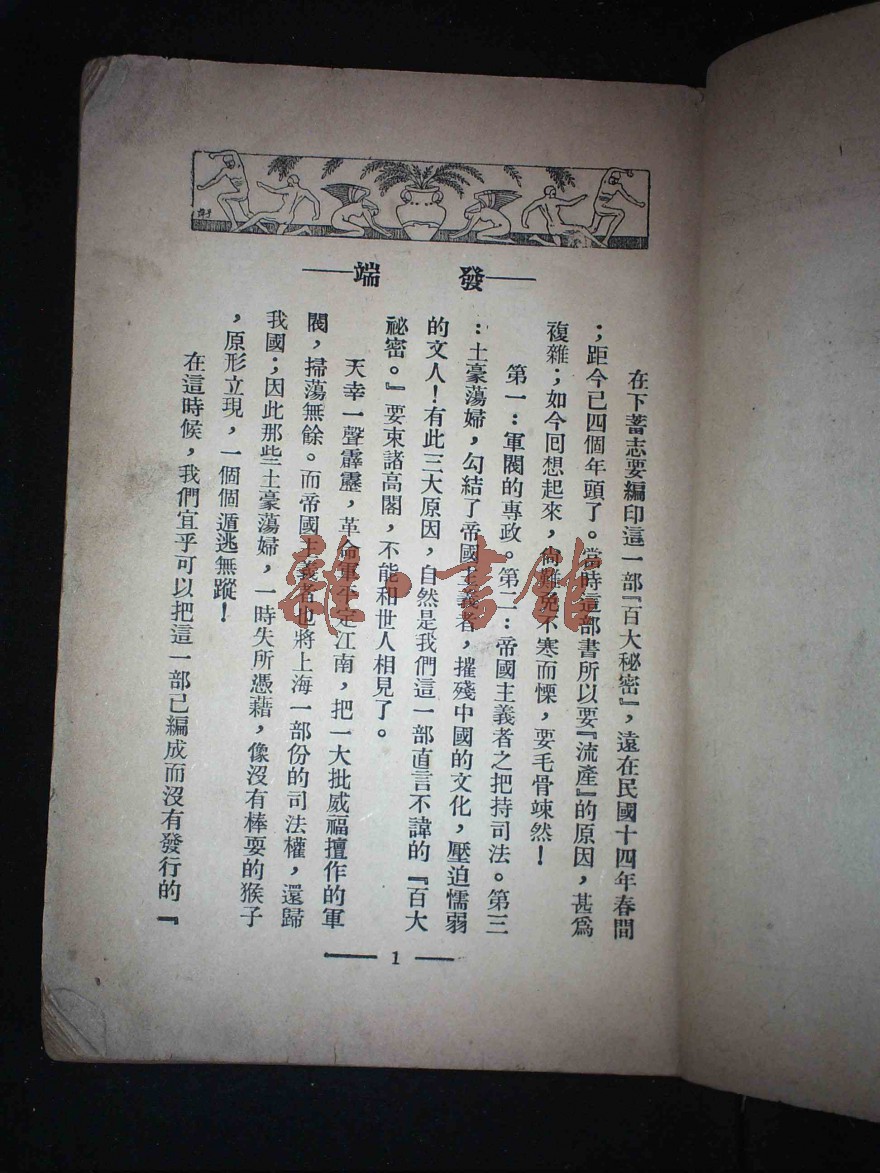 ——發　端——
在下蓄志要編印這一部『百大秘密』，遠在民國十四年春間
；距今已四個年頭了。當時這部書所以要『流產』的原因，甚爲
複雜；如今回想起來，尙難免不寒而慄，要毛骨竦然！
第一：軍閥的專政。第二：帝國主義者之把持司法。第三
：土豪蕩婦，勾結了帝國主義者，摧殘中國的文化，壓迫懦弱
的文人！有此三大原因，自然是我們這一部直言不諱的『百大
祕密。』要束諸高閣，不能和世人相見了。
天幸一聲霹靂，革命軍平定江南，把一大批威福擅作的軍
閥，掃蕩無餘。而帝國主義者也將上海一部份的司法權，還歸
我國；因此那些土豪蕩婦，一時失所憑藉，像沒有棒耍的猴子
，原形立現，一個個遁逃無蹤！
在這時候，我們宜乎可以把這一部已編成而沒有發行的『
—— 1 ——
雜·書館